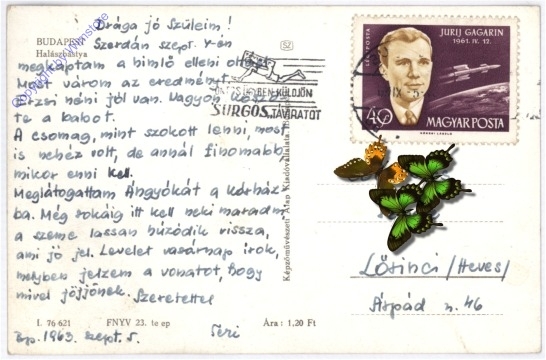 BUDAPEST
Halászbástya
Drága jó Szüleim!
Szerdán szept. 4-én
megkaptam a himlő elleni oltást.
Most várom az eredményt.
Erzsi néni jól van. Nagyon köszön
te a babot.
A csomag, mint szokott lenni, most
is nehéz volt, de annál finomabb
mikor enni kell.
Meglátogattam Angyókát a kórház
ba. Még sokáig itt kell neki maradni
a szeme lassan húzódik vissza,
ami jó jel. Levelet vasárnap írok,
melyben jelzem a vonatot, hogy
mivel jöjjönek. Szeretettel
Teri
Bp. 1963. szept. 5.
I. 76 621 FNYV 23. te ep Ára: 1,20 Ft
Képzőművészeti Alap Kiadóvállalata,
52
KÜLDJÖN
SÜRGŐS TÁVIRATOT
LÉGIPOSTA
JURIJ GAGARIN
1961. IV. 12.
40f
MAGYAR POSTA
Lőrinci /Heves/
Árpád u. 46